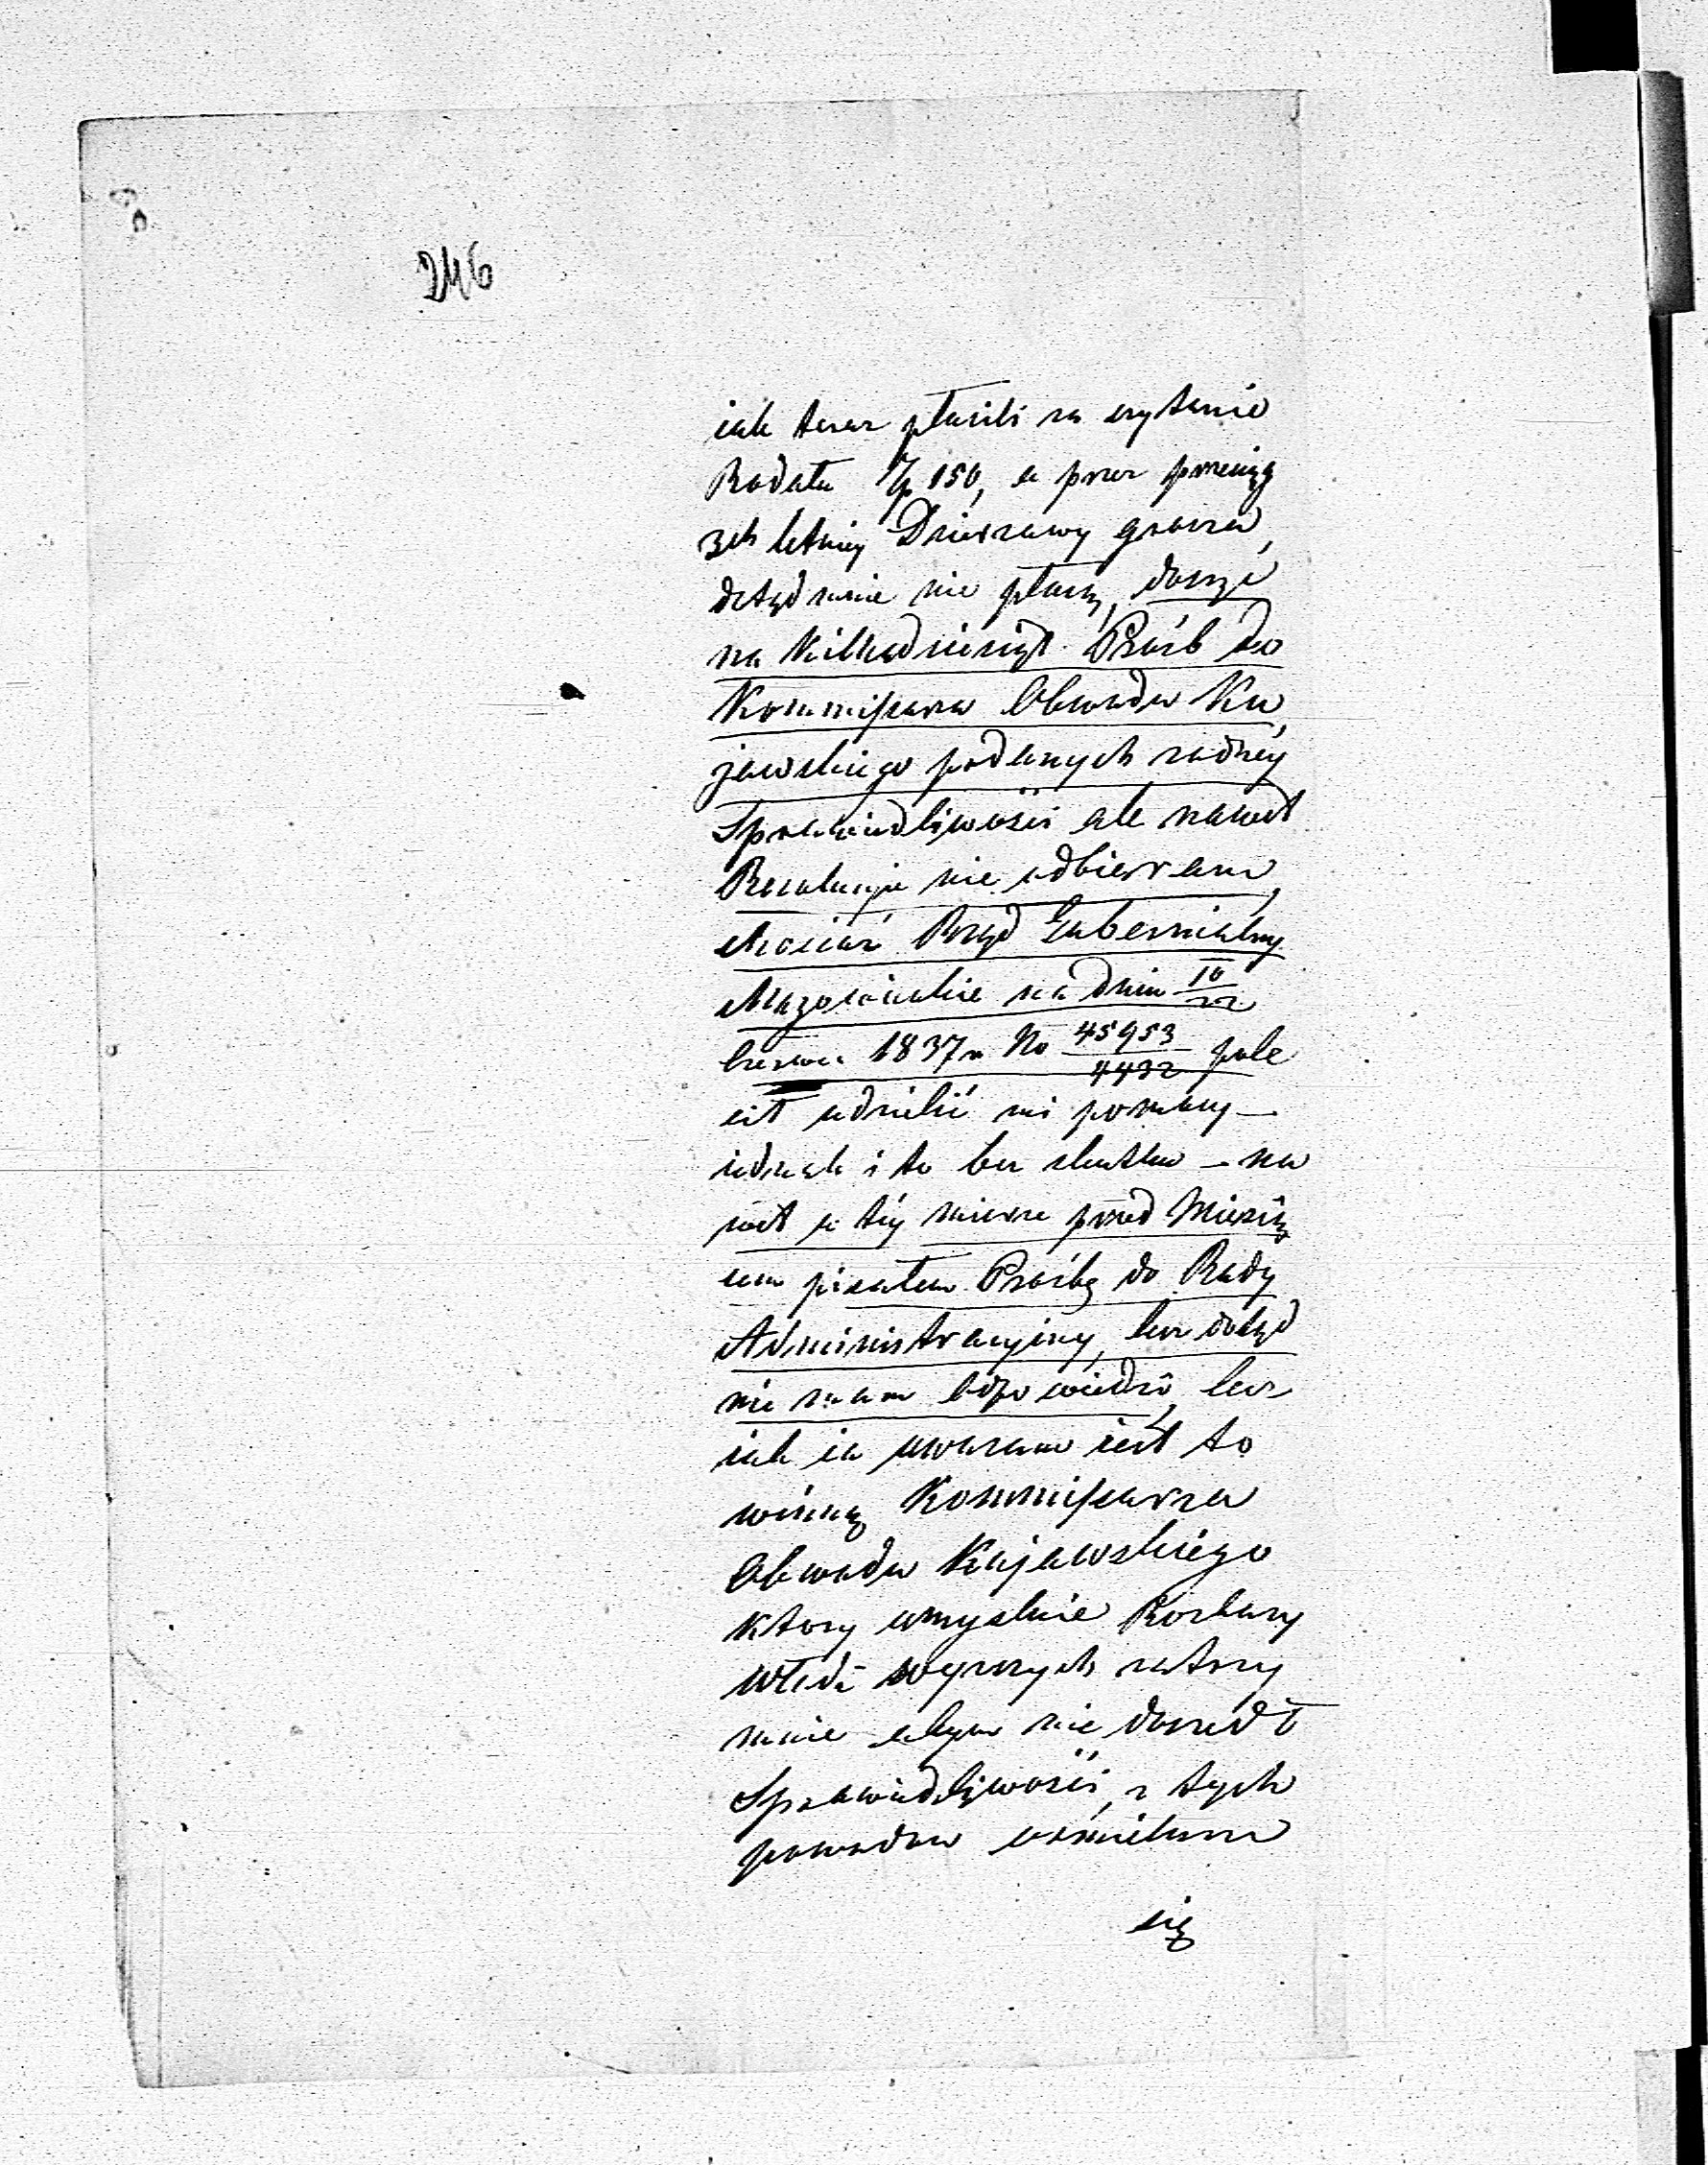 246
iak teraz płacili za czytanie
Rodału Zp 150, a przez przeciąg
3ch letniej Dzierzawy grosza
dotąd mnie nie płacą, dosyć
na kilkadziesiąt Próśb do
Kommissarza Obwodu Ku
jawskiego podanych zadney
Sprawiedliwości ale nawet
Rezolucyi nie odbieram,
chociaż Rząd Gubernialny
Mazowiecki na dniu 10/22
Czerwca 1837 r No 45953/4432 pole
cił udzielić mi pomocy —
iednak i to bez skutku — na
wet w tey mierze przed Miesią
cem pisałem Prośbę do Rady
Administracyiney, lecz dotąd
nie mam odpowiedzi, lecz
iak ia uwazam iest to
winną Kommissarza
Obwodu Kujawskiego
ktory umyslnie Rozkazy
Władz wyzszych
mnie abym nie doszedł
Sprawiedliwości, z tych
powodow ośmielam
się